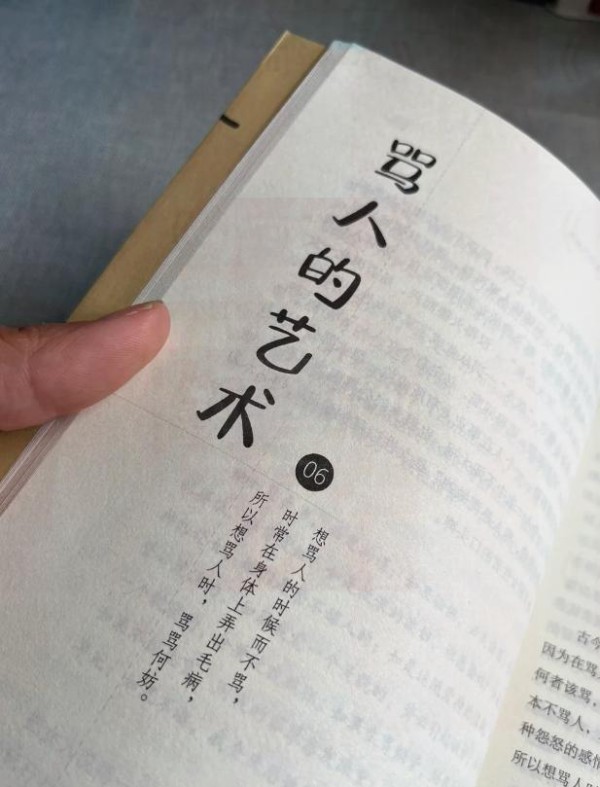 骂人的艺术
06
想骂人的时候而不骂，
时常在身体上弄出毛病，
所以想骂人时，骂骂何妨。
古今
因为在骂
何者该骂，
本不骂人，
种怨怒的感情
所以想骂人时